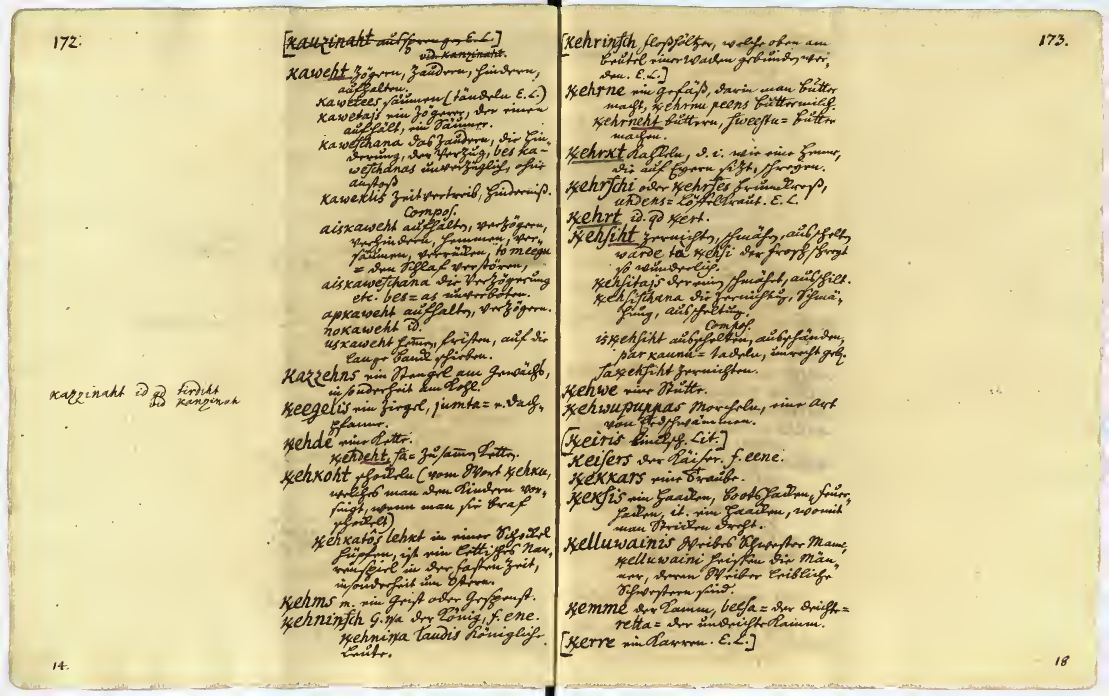 172.
[kauzinaht aufsprengen E.L.]
vid. kanzinaht.
kaweht zögern, zaudern, hindern,
aufhalten.
kawetees säumen (tändeln E.L.)
kawetajs ein Zögerer, der einen
aufhält, ein Säumer.
kaweschana das Zaudern, die Hin-
derung, der Verzug, bes ka-
weschanas unverzüglich, ohne
anstoß
kaweklis Zeitvertreib, Hinderniß.
Compos.
aiskaweht aufhalten, verzögern,
verhindern, hemmen, ver-
säumen, to meegu
= den Schlaf verstören,
aiskaweschana die Verzögerung
etc. bes= as unverboten.
apkaweht aufhalten, verzögern.
nokaweht id.
uskaweht fristen, auf die
lange Bank schieben.
kazzehns ein Stengel am Gewächs,
insonderheit am Kohl.
kazzinaht id qd kirdiht
id kanzinah
keegelis ein Ziegel, jumta= e. Dach-
pfanne.
kehde eine Kette.
kehdeht, sa= zusamen Ketten.
kehkoht schockeln (vom Wort kehku,
welches man den Kindern vor-
singt, wenn man sie brav
schockelt)
kehkatôs lehkt in einer Schockel
hüpfen, ist ein lettisches Nar-
renspiel in der fasten Zeit,
insonderheit um Ostern.
kehms m. ein Geist oder Gespenst.
kehninsch G. ņa der König, f. ene.
kehniņa laudis Königliche
Leute.
14.
173.
[kehrinsch floßhöltzer, welche oben am
beutel einer Waden gebunden wer-
den. E.L.]
kehrne ein Gefäß, darin man Butter
macht, kehrnu peens buttermilch.
kehrneht buttern, sweestu= butter
machen.
kehrkt kakeln, d. i. wie eine Henne,
die auf Eyern sitzt, schreyen.
kehrschi oder kehrses brunnkreß,
uhdens= Löffelkraut. E.L.
kehrt id. qd kert.
kehsiht zernichten, schmähen, ausschelten
warde tà kehsi der frosch schreyt
so wunderlich.
kehsitajs der einen schmähet, ausschilt.
kehsischana die Zernichtung, Schmä-
hung, ausscheltung.
Compos.
iskehsiht ausschelten, ausschänden,
par kaunu= tadeln, unrecht geb.
sakehsiht zernichten.
kehwe eine Stutte.
kehwupuppas Morcheln, eine Art
von Erdschwämmen.
[keiris lincksch. Lit.]
keisers der Käiser, f. eene.
kekkars eine Traube.
keksis ein Haacken, bootshacken, feuer-
hacken, it. ein Haacken, womit
man Stricken dreht.
kelluwainis Weibes Schwester Mann,
kelluwaini heissen die Män-
ner, deren Weiber leibliche
Schwestern sind.
kemme der Kamm, beesa= der dichte=
retta= der undichte Kamm.
[kerre ein Karren. E.L.]
18